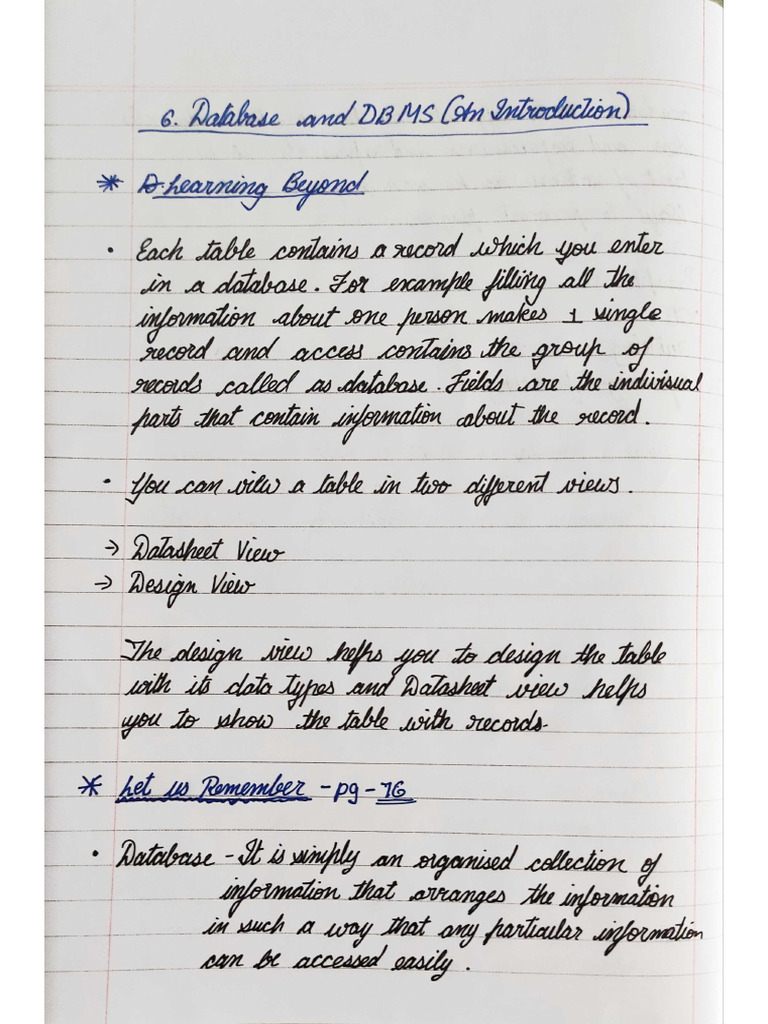 6. Database and DBMS (An Introduction)
* Learning Beyond
• Each table contains a record which you enter
in a database. For example filling all the
information about one person makes 1 single
record and access contains the group of
records called as database. Fields are the indivisual
parts that contain information about the record.
• You can view a table in two different views.
→ Datasheet View
→ Design View
The design view helps you to design the table
with its data types and Datasheet view helps
you to show the table with records.
* Let us Remember - pg - 76
• Database - It is simply an organised collection of
information that arranges the information
in such a way that any particular information
can be accessed easily.